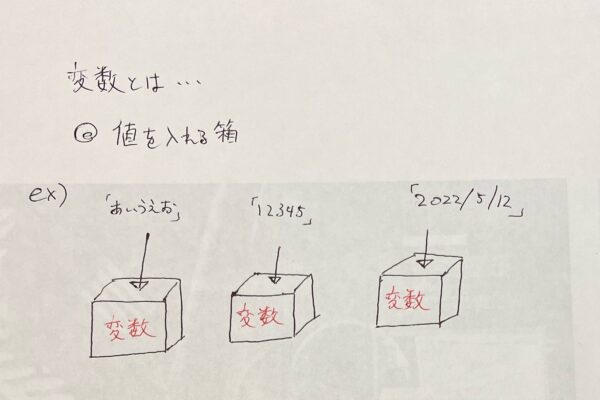 変数とは…
◎ 値を入れる箱
ex)
「あいうえお」 「12345」 「2022/5/12」
変数 変数 変数